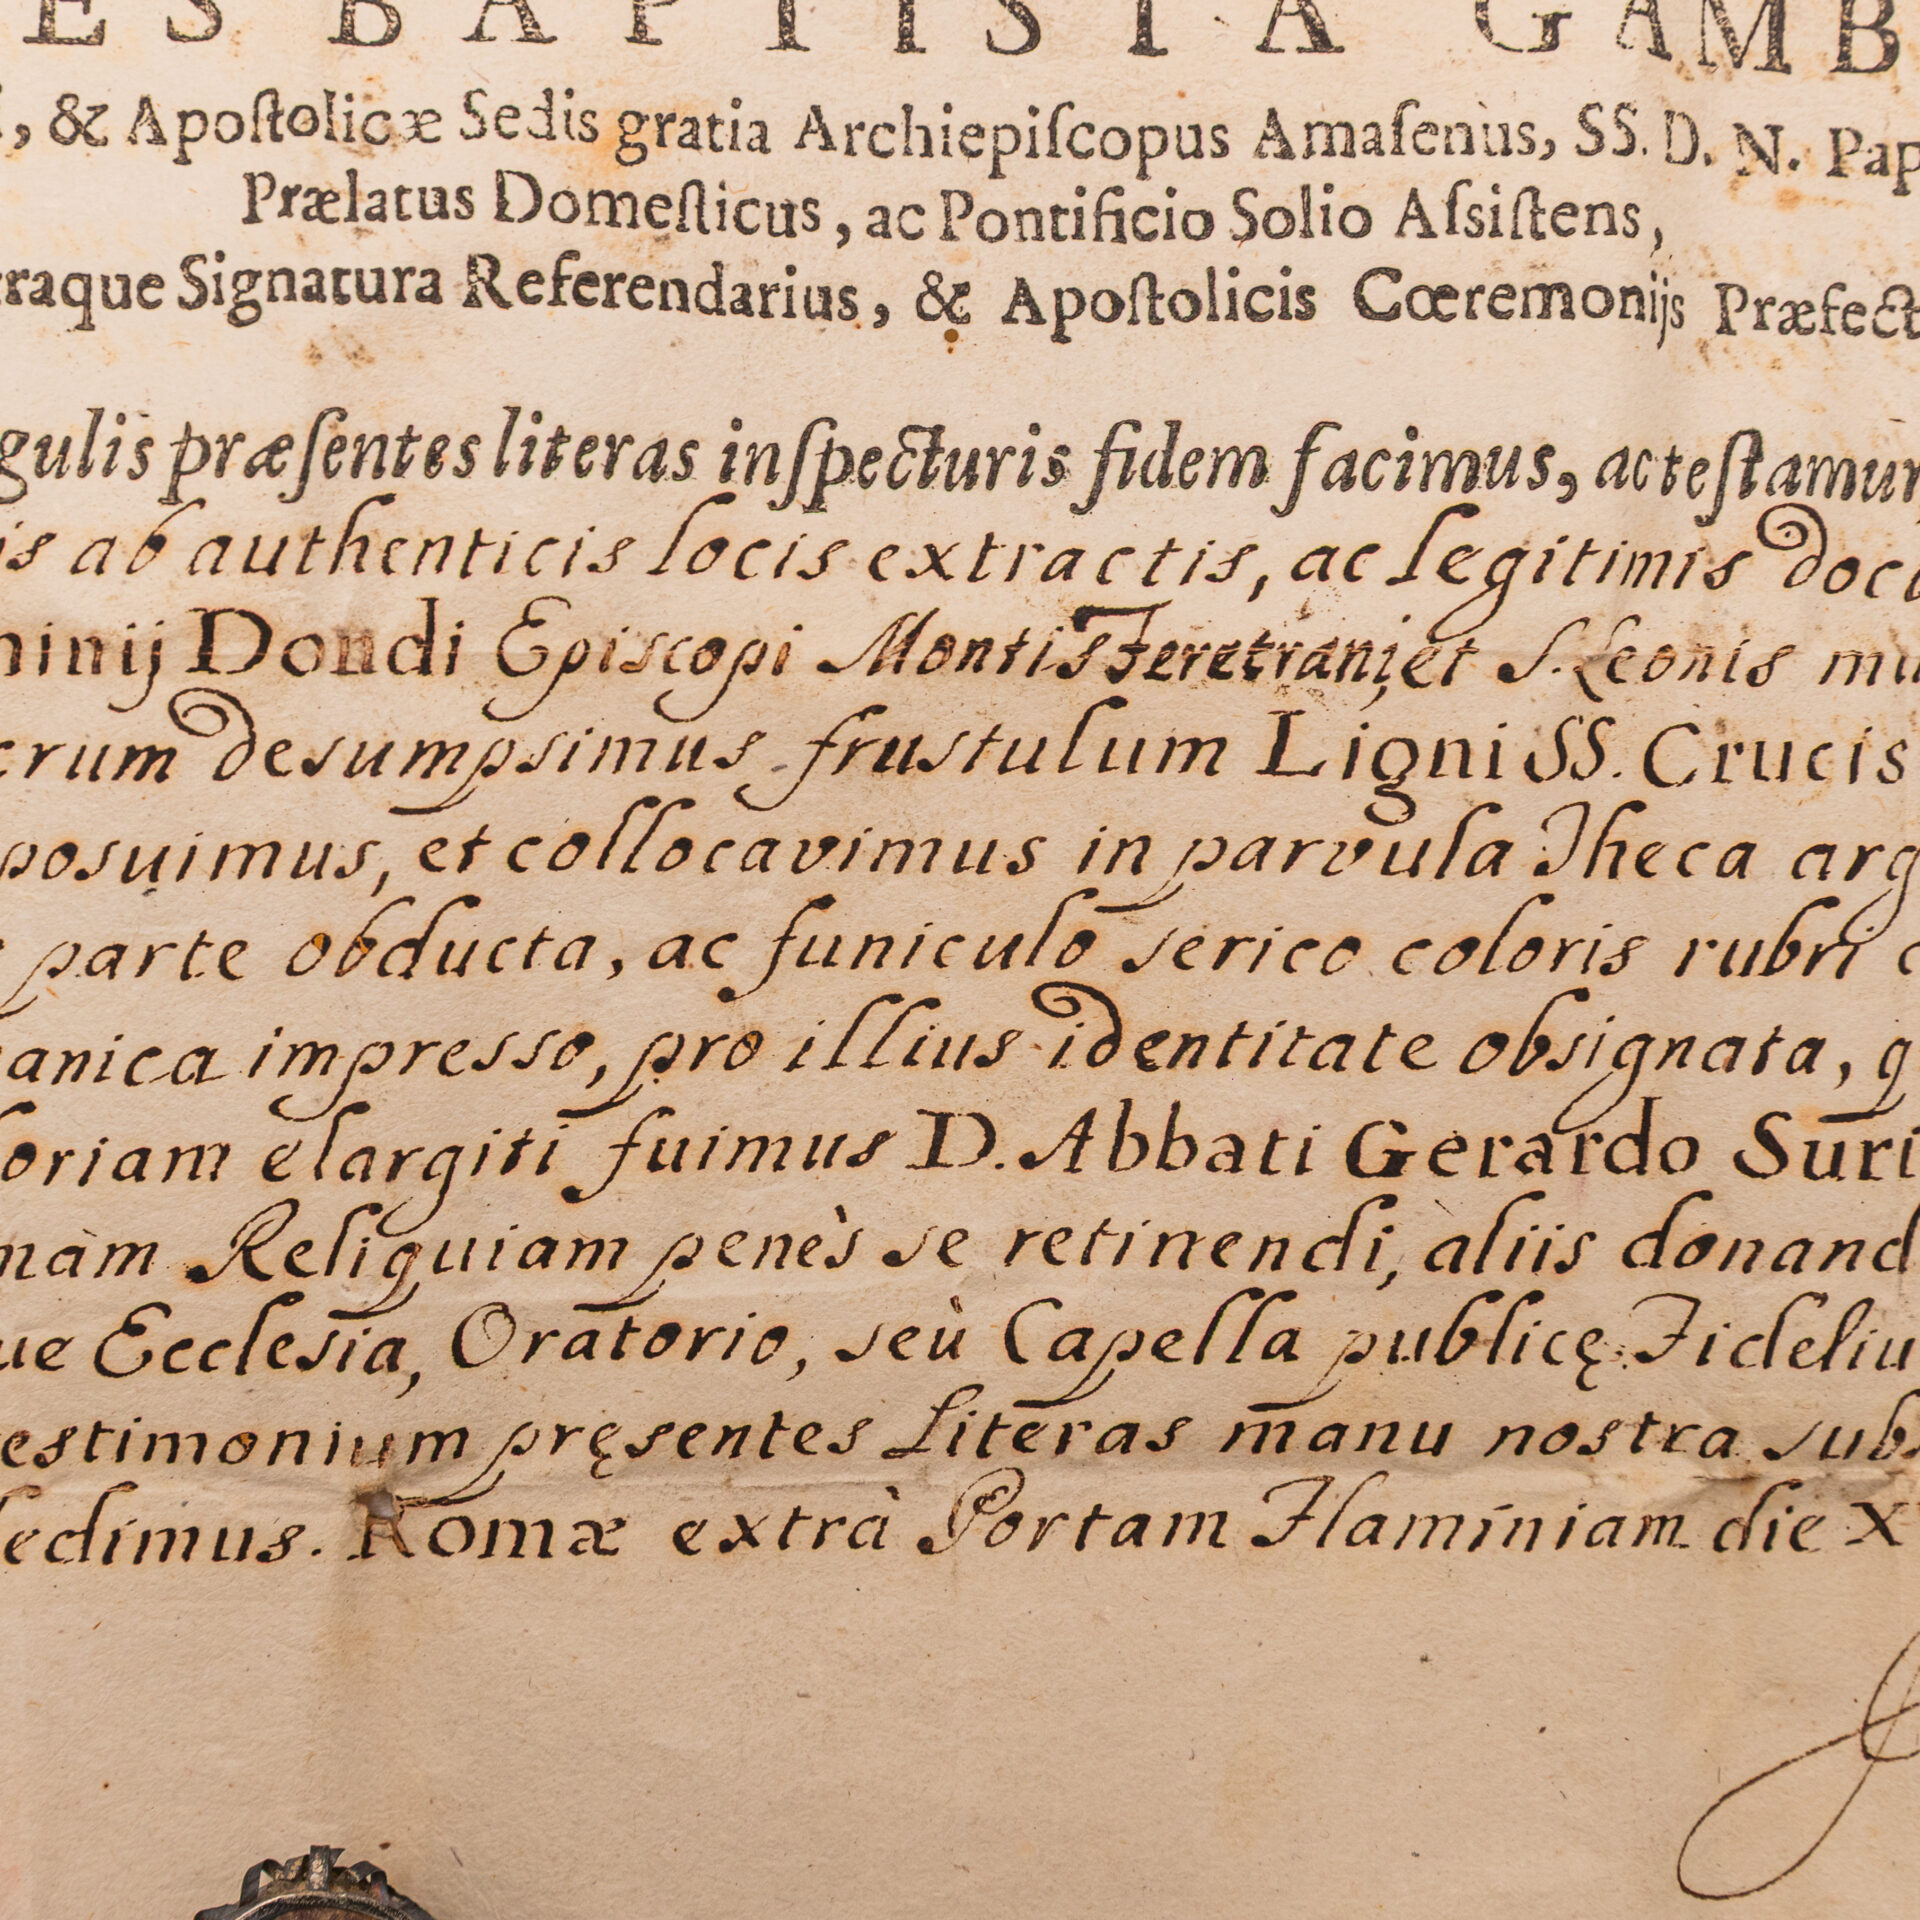 ES BAPTISTA GAMB
, & Apoſtolicæ Sedis gratia Archiepiſcopus Amaſenus, SS. D. N. Pap
Prælatus Domeſticus, ac Pontificio Solio Aſsiſtens,
raque Signatura Referendarius, & Apoſtolicis Cœremonijs Præfect
gulis præſentes literas inſpecturis fidem facimus, ac teſtamur
is ab authenticis locis extractis, ac legitimis doc
inij Dondi Episcopi Montis Feretrani, et S. Leonis mu
crum desumpsimus frustulum Ligni SS. Crucis
posuimus, et collocavimus in parvula Theca arg
parte obducta, ac funiculo serico coloris rubri c
anica impresso, pro illius identitate obsignata, q
oriam elargiti fuimus D. Abbati Gerardo Suri
màm Reliquiam penès se retinendi, aliis donand
ue Ecclesia, Oratorio, seù Capella publicę Fideliu
estimonium pręsentes Literas manu nostra subs
dedimus. Romæ extrà Portam Flaminiam die X